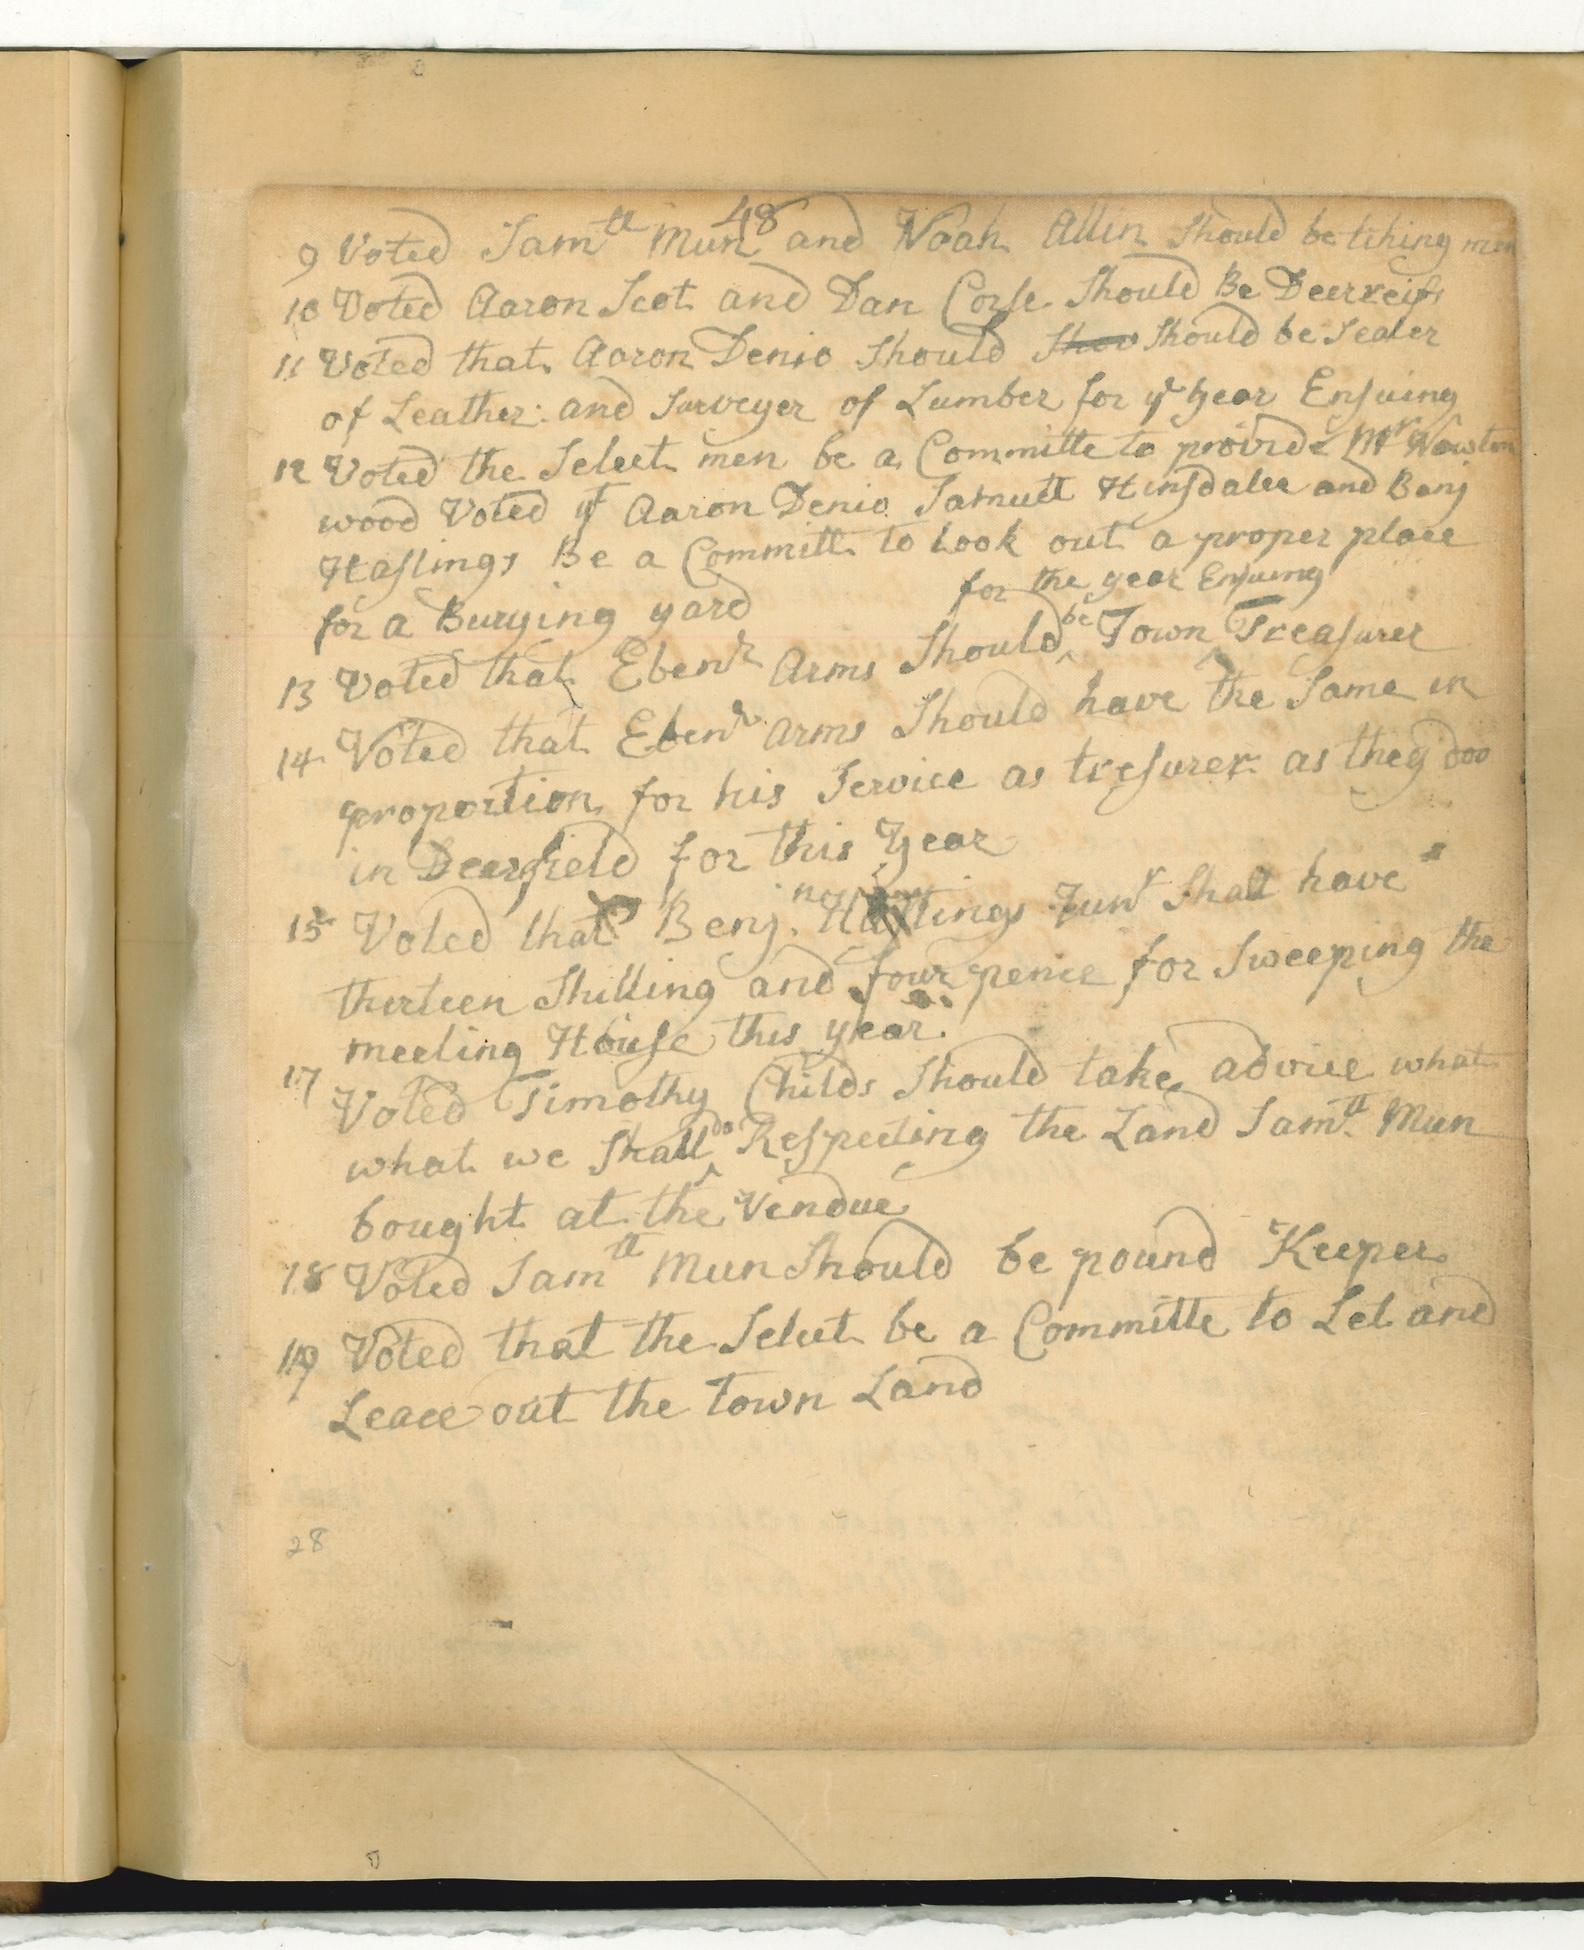 48
9 Voted Samll Mun and Noah Allin Should be tihing men
10 Voted Aaron Scot and Dan Corse Should Be Deerreifs
11 Voted that Aaron Denio Should Shou Should be Sealer
of Leather: and Surveyer of Lumber for ye year Ensuing
12 Voted the Select men be a Committe to provide Mr Newton
wood Voted yt Aaron Denio Samuell Hinsdalee and Benj
Hastings Be a Committe to Look out a proper place
for a Burying yard
for the year Ensuing
13 Voted that Ebenr Arms Should be Town Treasurer
14 Voted that Ebenr Arms Should have the Same in
proportion for his Service as tresurer as they doo
in Deerfield for this Year
15 Voted that Benjn Hastings Junr Shall have
thirteen Shilling and four pence for Sweeping the
meeting House this year
17 Voted Timothy Childs Should take advice what
what we Shall do Respecting the Land Samll Mun
bought at the Vendue
18 Voted Samll Mun Should be pound Keeper
19 Voted that the Select be a Committe to Let and
Leace out the town Land
28